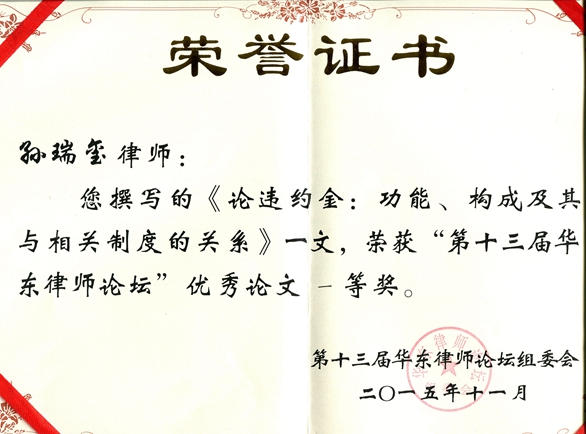 荣誉证书
孙瑞玺律师：
您撰写的《论违约金：功能、构成及其
与相关制度的关系》一文，荣获“第十三届华
东律师论坛”优秀论文一等奖。
第十三届华东律师论坛组委会
二〇一五年十一月